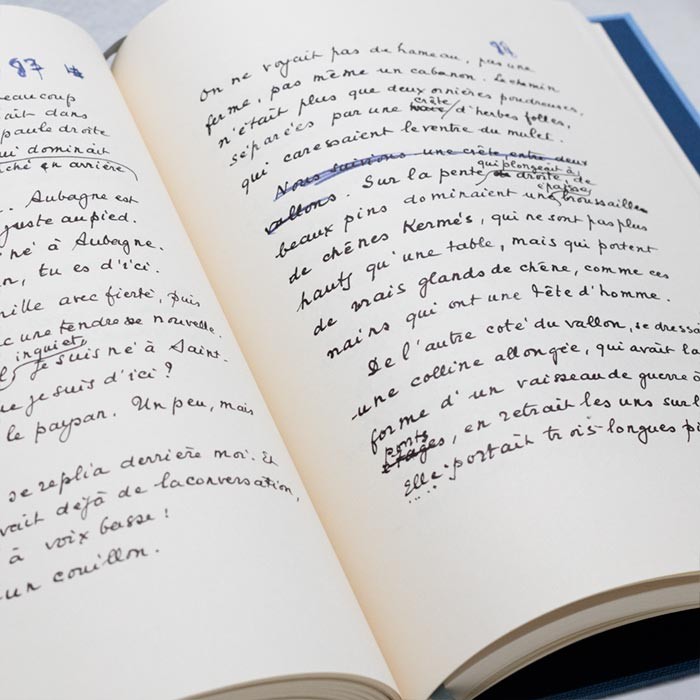 87
eaucoup
ait dans
paule droite
ui dominait
ché en arrière
.. Aubagne est
juste au pied.
né à Aubagne.
n, tu es d'ici.
mille avec fierté, puis
c une tendresse nouvelle.
inquiet,
Je suis né à Saint-
ue je suis d'ici ?
le paysan. Un peu, mais
se replia derrière moi. Et
vait déjà de la conversation,
à voix basse :
un couillon.
On ne voyait pas de hameau, pas une
ferme, pas même un cabanon. Le chemin
n'était plus que deux ornières poudreuses,
crête
séparées par une d'herbes folles,
qui caressaient le ventre du mulet.
Nous suivions une crête, entre deux
qui plongeait à
vallons. Sur la pente droite, de
épaisse
beaux pins dominaient une broussaille
de chênes Kermés, qui ne sont pas plus
hauts qu'une table, mais qui portent
de vrais glands de chêne, comme ces
nains qui ont une tête d'homme.
De l'autre coté du vallon, se dressa
une colline allongée, qui avait la
forme d'un vaisseau de guerre à
ponts
étages, en retrait les uns sur l
Elle portait trois longues pi